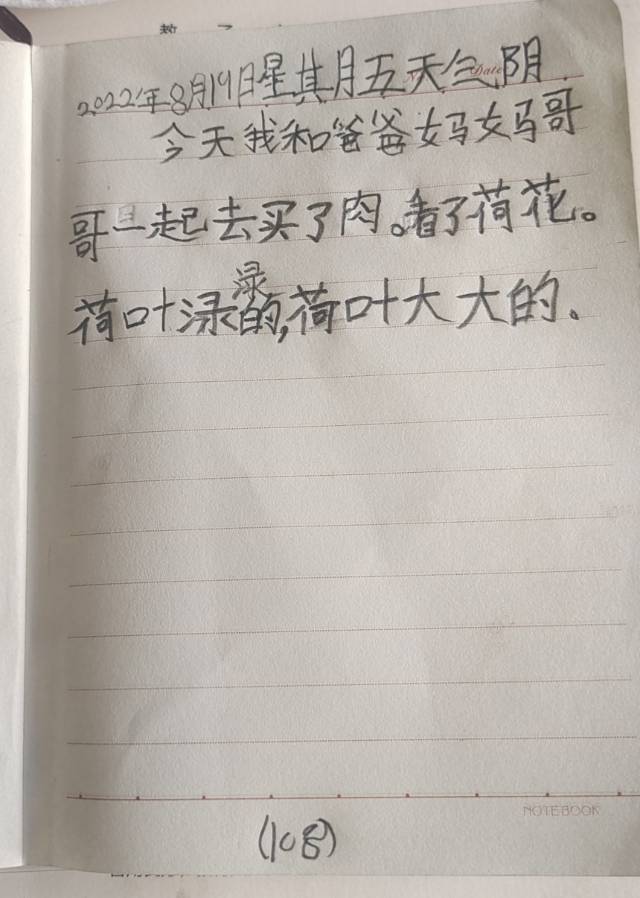 教
2022年8月19日星其月五天气阴
Date
今天我和爸爸妈妈哥
哥一起去买了肉。看了荷花。
荷叶渌渌的,荷叶大大的、
NOTEBOOK
(108)